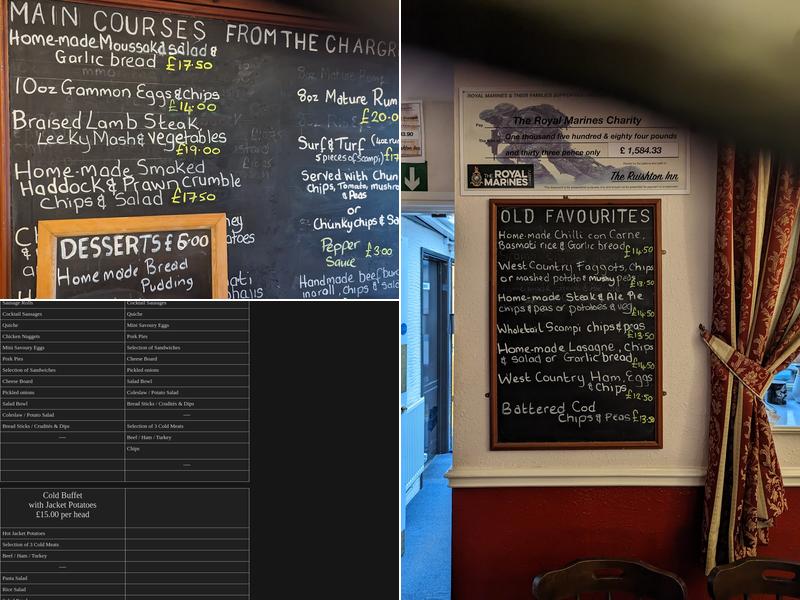 MAIN COURSES
Home-made Moussaka salad &
Garlic bread £17.50
10oz Gammon Eggs & chips
£14.00
Braised Lamb Steak
Leeky Mash & vegetables
£19.00
Home-made Smoked
Haddock & Prawn crumble
chips & Salad £17.50
DESSERTS £6.00
Home made Bread
Pudding
FROM THE CHARGR
8oz Mature Rum
£20.0
Surf & Turf (4oz rum
5 pieces of scampi) £17
Served with Chun
chips, Tomato, mushro
& Peas
or
Chunky chips & Sa
Pepper
Sauce £3.00
Handmade beefbur
in roll, chips & Sala
ROYAL MARINES & THEIR FAMILIES
Pay
The Royal Marines Charity
One thousand five hundred & eighty four pounds
and thirty three pence only £ 1,584.33
THE ROYAL
MARINES
The Ruishton Inn
OLD FAVOURITES
Home-made Chilli con Carne,
Basmati rice & Garlic bread £14.50
West Country Faggots, chips
or mashed potato & mushy peas
£13.50
Home-made Steak & Ale Pie
chips & peas or potatoes & veg
£14.50
Wholetail Scampi chips & peas
£13.50
Home-made Lasagne, chips
& salad or Garlic bread
£14.50
West Country Ham, Eggs
& chips
£12.50
Battered Cod
chips & Peas £13.50
Sausage Rolls Cocktail Sausages
Cocktail Sausages Quiche
Quiche Mini Savoury Eggs
Chicken Nuggets Pork Pies
Mini Savoury Eggs Selection of Sandwiches
Pork Pies Cheese Board
Selection of Sandwiches Pickled onions
Cheese Board Salad Bowl
Pickled onions Coleslaw / Potato Salad
Salad Bowl Bread Sticks / Crudités & Dips
Coleslaw / Potato Salad ----
Bread Sticks / Crudités & Dips Selection of 3 Cold Meats
---- Beef / Ham / Turkey
Chips
----
Cold Buffet
with Jacket Potatoes
£15.00 per head
Hot Jacket Potatoes
Selection of 3 Cold Meats
Beef / Ham / Turkey
----
Pasta Salad
Rice Salad